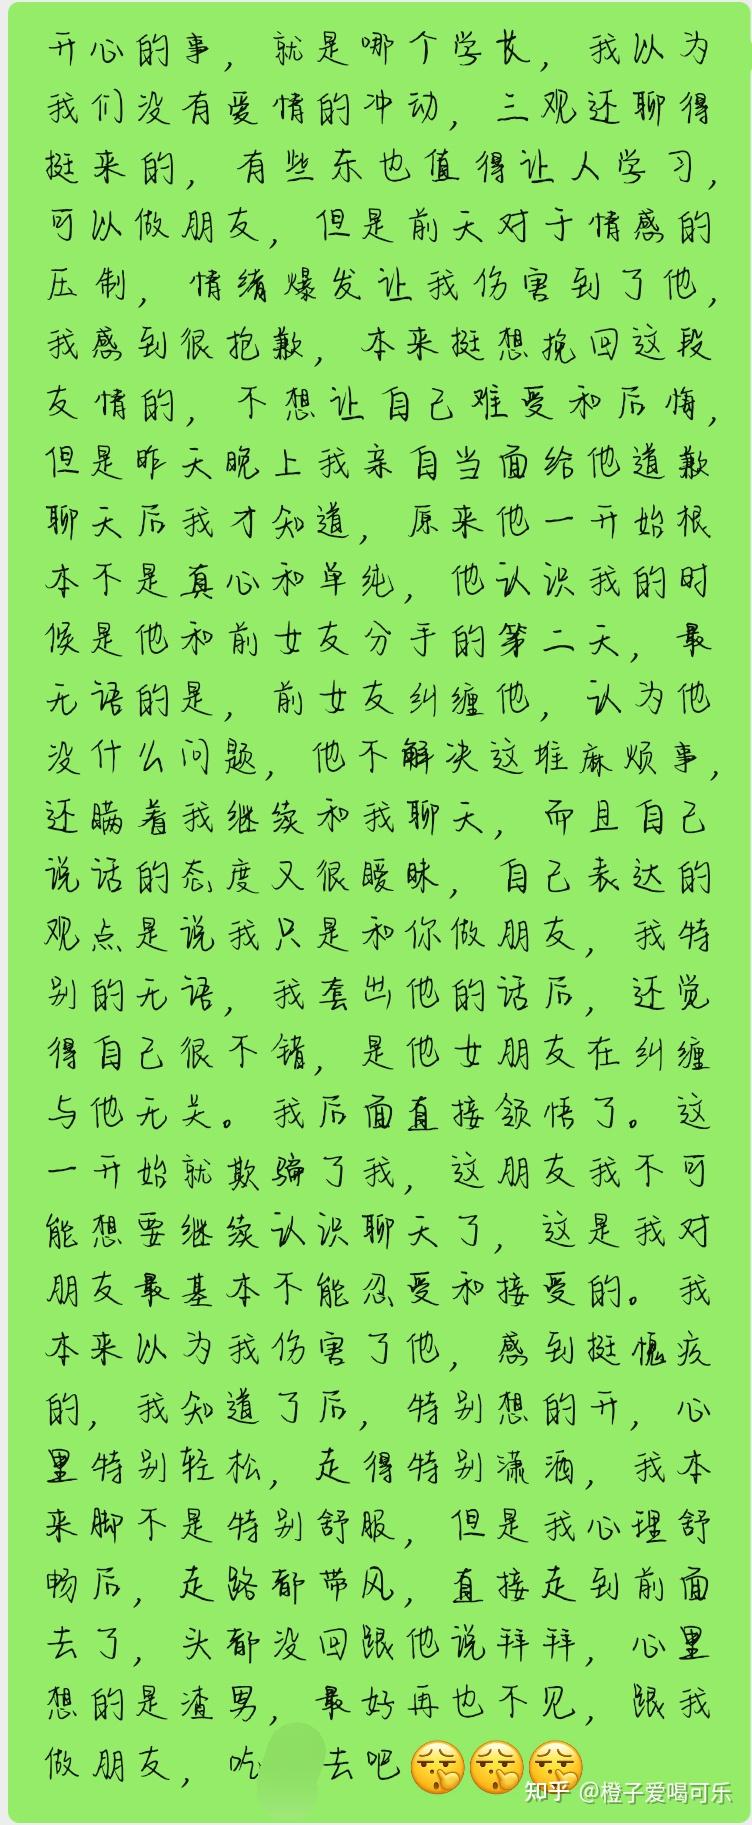 开心的事，就是哪个学长，我以为
我们没有爱情的冲动，三观还聊得
挺来的，有些东也值得让人学习，
可以做朋友，但是前天对于情感的
压制，情绪爆发让我伤害到了他，
我感到很抱歉，本来挺想挽回这段
友情的，不想让自己难受和后悔，
但是昨天晚上我亲自当面给他道歉
聊天后我才知道，原来他一开始根
本不是真心和单纯，他认识我的时
候是他和前女友分手的第二天，最
无语的是，前女友纠缠他，认为他
没什么问题，他不解决这堆麻烦事，
还瞒着我继续和我聊天，而且自己
说话的态度又很暧昧，自己表达的
观点是说我只是和你做朋友，我特
别的无语，我套出他的话后，还觉
得自己很不错，是他女朋友在纠缠
与他无关。我后面直接领悟了。这
一开始就欺骗了我，这朋友我不可
能想要继续认识聊天了，这是我对
朋友最基本不能忍受和接受的。我
本来以为我伤害了他，感到挺愧疚
的，我知道了后，特别想的开，心
里特别轻松，走得特别潇洒，我本
来脚不是特别舒服，但是我心理舒
畅后，走路都带风，直接走到前面
去了，头都没回跟他说拜拜，心里
想的是渣男，最好再也不见，跟我
做朋友，吃 去吧
知乎 @橙子爱喝可乐